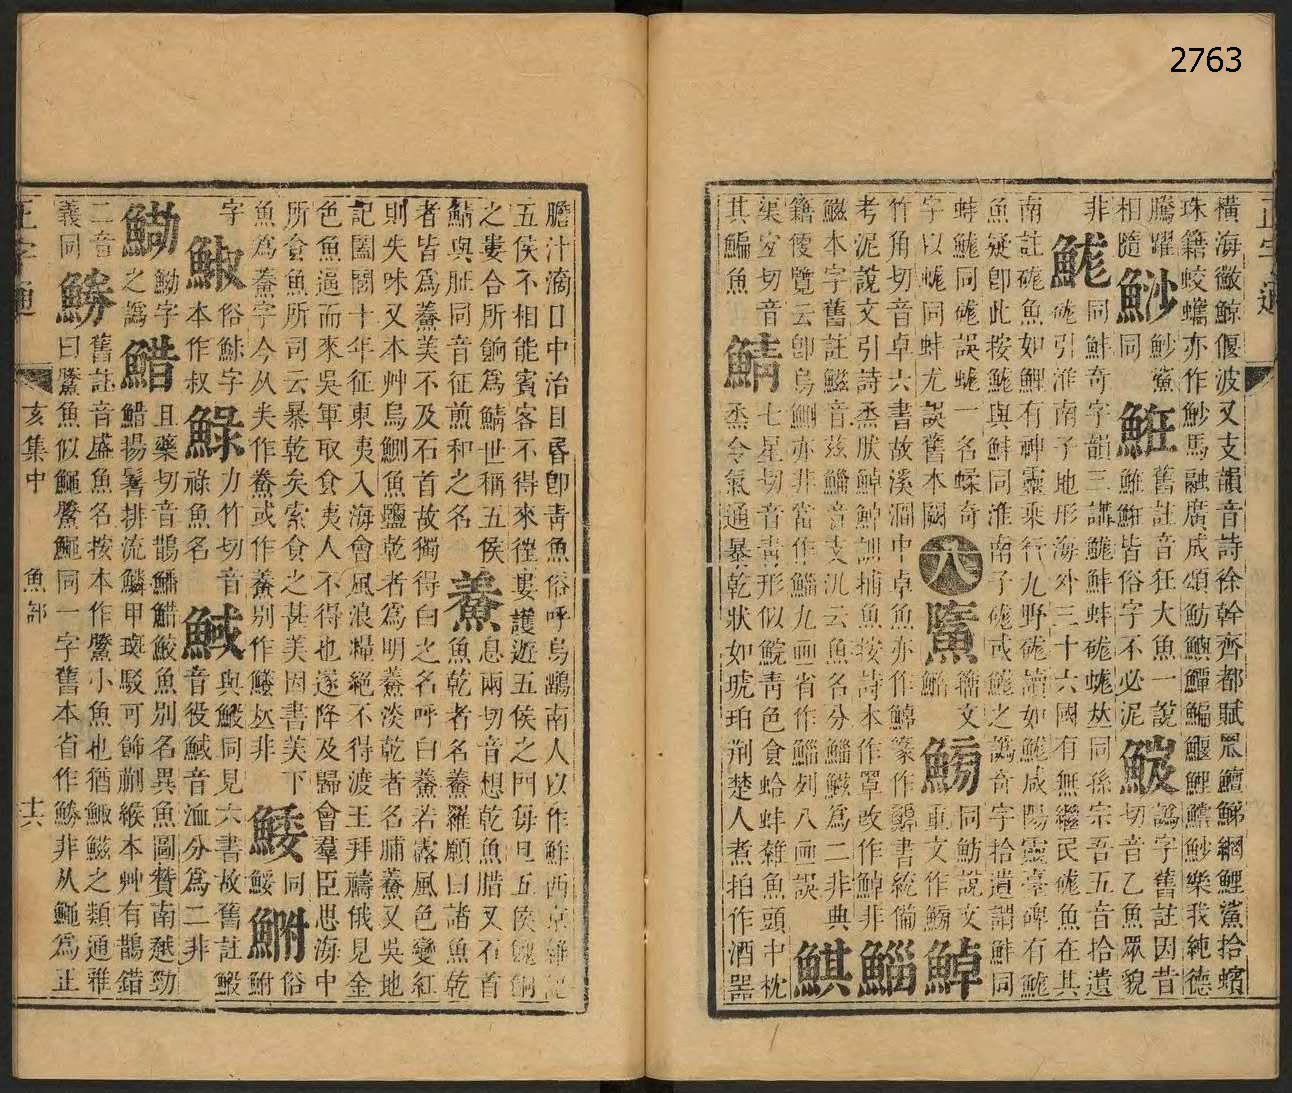 2763
正字通
橫海徽鯨偃波又支韻音詩徐幹齊都賦罛鱣鮷網鯉鯊拾蠙
珠籍蛟蠵亦作魦馬融廣成頌魴鱮鱏鯿鰋鯉鱨魦樂我純德
騰躍相隨
魦 魦鯊同
鮏 舊註音狂大魚一說鮏皆俗字不必泥
鮁 譌字舊註因昔切音乙魚眾貌非
鮵 同鮩奇字韻三講鮵鮩蚌硥蜣𠀤同孫宗吾五音拾遺
硥引淮南子地形海外三十六國有無繼民硥魚在其
南註硥魚如鯉有神靈乘行九野硥讀如鮵咸陽靈臺碑有鮵
魚疑卽此按鮵與鮩同淮南子硥或鮵之譌奇字拾遺謂鮩同
蚌鮵同硥誤蜣一名蜣
字以蜣同蚌尤誤舊本闕
八
𩺰 鯦籀文
鰟 同魴說文重文作鰟
鯙 竹角切音卓六書故溪澗中卓魚亦作鯙篆作書統備
考泥說文引詩烝然鯙鯙訓捕魚按詩本作罩改作鯙非
鯔 鰦本字舊註鰦音兹鯔音支汎云魚名分鯔鰦爲二非典
籍便覽云卽烏鰂亦非當作鯔九畫省作鯔列八畫誤
鯕 渠宜切音其鯿魚
鯖 七星切音青形似鯇青色食蛤蚌雜魚頭中枕
烝令氣通暴乾狀如琥珀荆楚人煮拍作酒器
膽汁滴口中治目昏卽靑魚俗呼烏鶄南人以作鮓西京雜記
五侯不相能賓客不得來徃婁護遊五侯之門每旦五侯餽餉
之婁合所餉爲鯖世稱五侯
鯖與胚同音征煎和之名
鯗 息兩切音想乾魚腊又石首
魚乾者名鯗羅願曰諸魚乾
者皆爲鯗美不及石首故獨得白之名呼白鯗若露風色變紅
則失味又本艸烏鰂魚鹽乾者爲明鯗淡乾者名脯鯗又吳地
記闔閭十年征東夷入海會風浪糧絕不得渡王拜禱俄見金
色魚逼而來吳軍取食夷人不得也遂降及歸會羣臣思海中
所食魚所司云暴乾矣索食之甚美因書美下
魚爲鯗字今从羙作鯗或作鯗别作𠀤非
鯘 同鮾
鮒 俗鮒字
䱙 俗鮛字本作叔
鯥 力竹切音祿魚名
魊 與魥同見六書故舊註魥音役魊音洫分爲二非
䱂 鮂字之譌
䱜 且藥切音鵲鱕䱜鮫魚别名異魚圖贊南越勁
䱜揚鬐排流鱗甲斑駁可飾蒯緱本艸有䱜錯
二音
䲍 舊註音盛魚名按本作䲍小魚也猶鯫鰦之類通雅
曰䲍魚似鱦䲍鱦同一字舊本省作䲍非从鱦爲正
義同
正字通
亥集中
魚部
十六